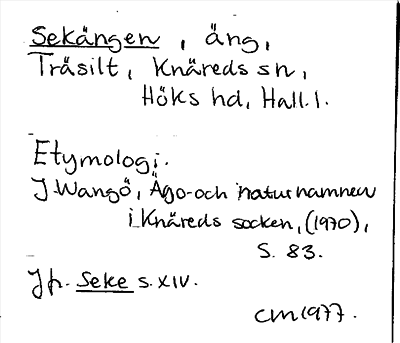 Sekängen, äng,
Träsilt, Knäreds sn,
Höks hd, Hall. l.
Etymologi.
J Wangö, Ägo- och naturnamnen
i Knäreds socken, (1970),
s. 83.
Jfr. Seke s. XIV.
CM 1977.